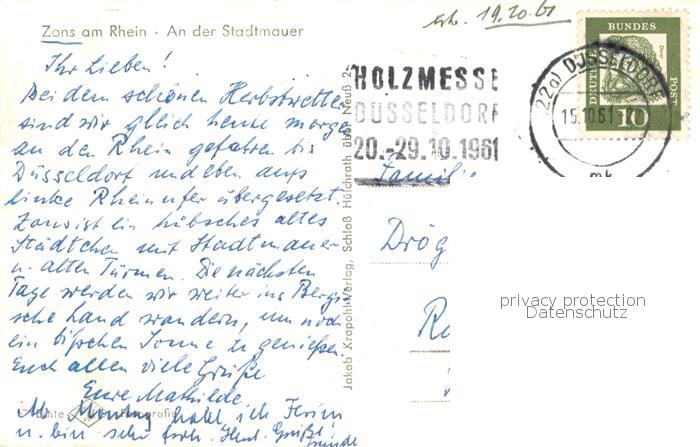 erh. 19.10.61
Zons am Rhein · An der Stadtmauer
Ihr Lieben!
Bei dem schönen Herbstwetter
sind wir gleich heute morgen
an den Rhein gefahren bis
Düsseldorf und eben aufs
linke Rheinufer übergesetzt.
Zons ist ein hübsches altes
Städtchen mit Stadtmauer
u. alten Türmen. Die nächsten
Tage werden wir weiter ins Bergi-
sche Land wandern, um noch
ein bißchen Sonne zu genießen.
Euch allen viele Grüße
Eure Mathilde
Ab Montag habe ich Ferien
u. bin sehr froh. Herzl. Grüße!
Echte Fotografie
Jakob Krapohl-Verlag, Schloß Hülchrath über Neuß 2
HOLZMESSE
DÜSSELDORF
20.-29.10.1961
(22a) DÜSSELDORF
15.10.61
mk
DEUTSCHE
BUNDES
POST
10
Familie
Drög
privacy protection
Datenschutz